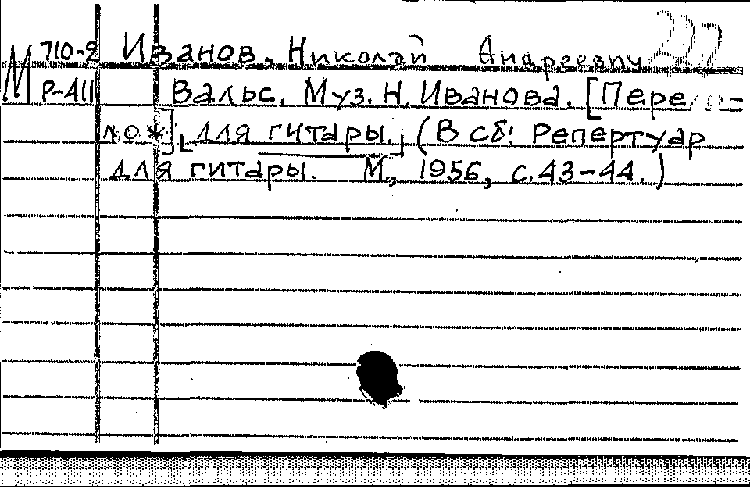 Иванов, Николай Андреевич
М 710-2
Р-411
Вальс. Муз. Н. Иванова. [Перело=
ж.] для гитары. (В сб: Репертуар
для гитары. М., 1956, с.43-44.)